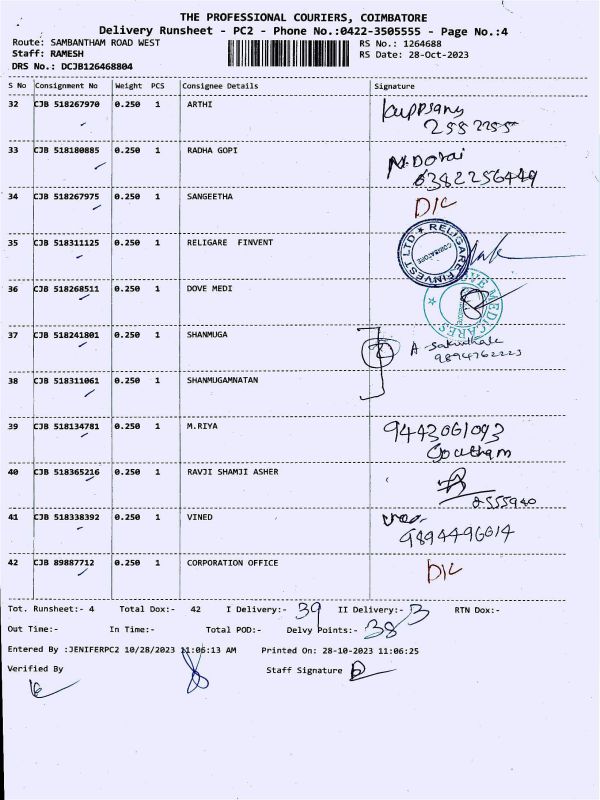 THE PROFESSIONAL COURIERS, COIMBATORE
Delivery Runsheet - PC2 - Phone No.:0422-3505555 - Page No.:4
Route: SAMBANTHAM ROAD WEST RS No.: 1264688
Staff: RAMESH RS Date: 28-Oct-2023
DRS No.: DCJB126468804
S No Consignment No Weight PCS Consignee Details Signature
32 CJB 518267970 0.250 1 ARTHI
33 CJB 518180885 0.250 1 RADHA GOPI M.Dorai
34 CJB 518267975 0.250 1 SANGEETHA D/C
35 CJB 518311125 0.250 1 RELIGARE FINVENT RELIGARE FINVEST LTD COIMBATORE
36 CJB 518268511 0.250 1 DOVE MEDI
37 CJB 518241801 0.250 1 SHANMUGA
9894762223
38 CJB 518311061 0.250 1 SHANMUGAMNATAN
39 CJB 518134781 0.250 1 M.RIYA 9443061093
Goutham
40 CJB 518365216 0.250 1 RAVJI SHAMJI ASHER
41 CJB 518338392 0.250 1 VINED
9894496014
42 CJB 89887712 0.250 1 CORPORATION OFFICE D/C
Tot. Runsheet:- 4 Total Dox:- 42 I Delivery:- 39 II Delivery:- 3 RTN Dox:-
Out Time:- In Time:- Total POD:- Delvy Points:- 38
Entered By :JENIFERPC2 10/28/2023 11:06:13 AM Printed On: 28-10-2023 11:06:25
Verified By Staff Signature